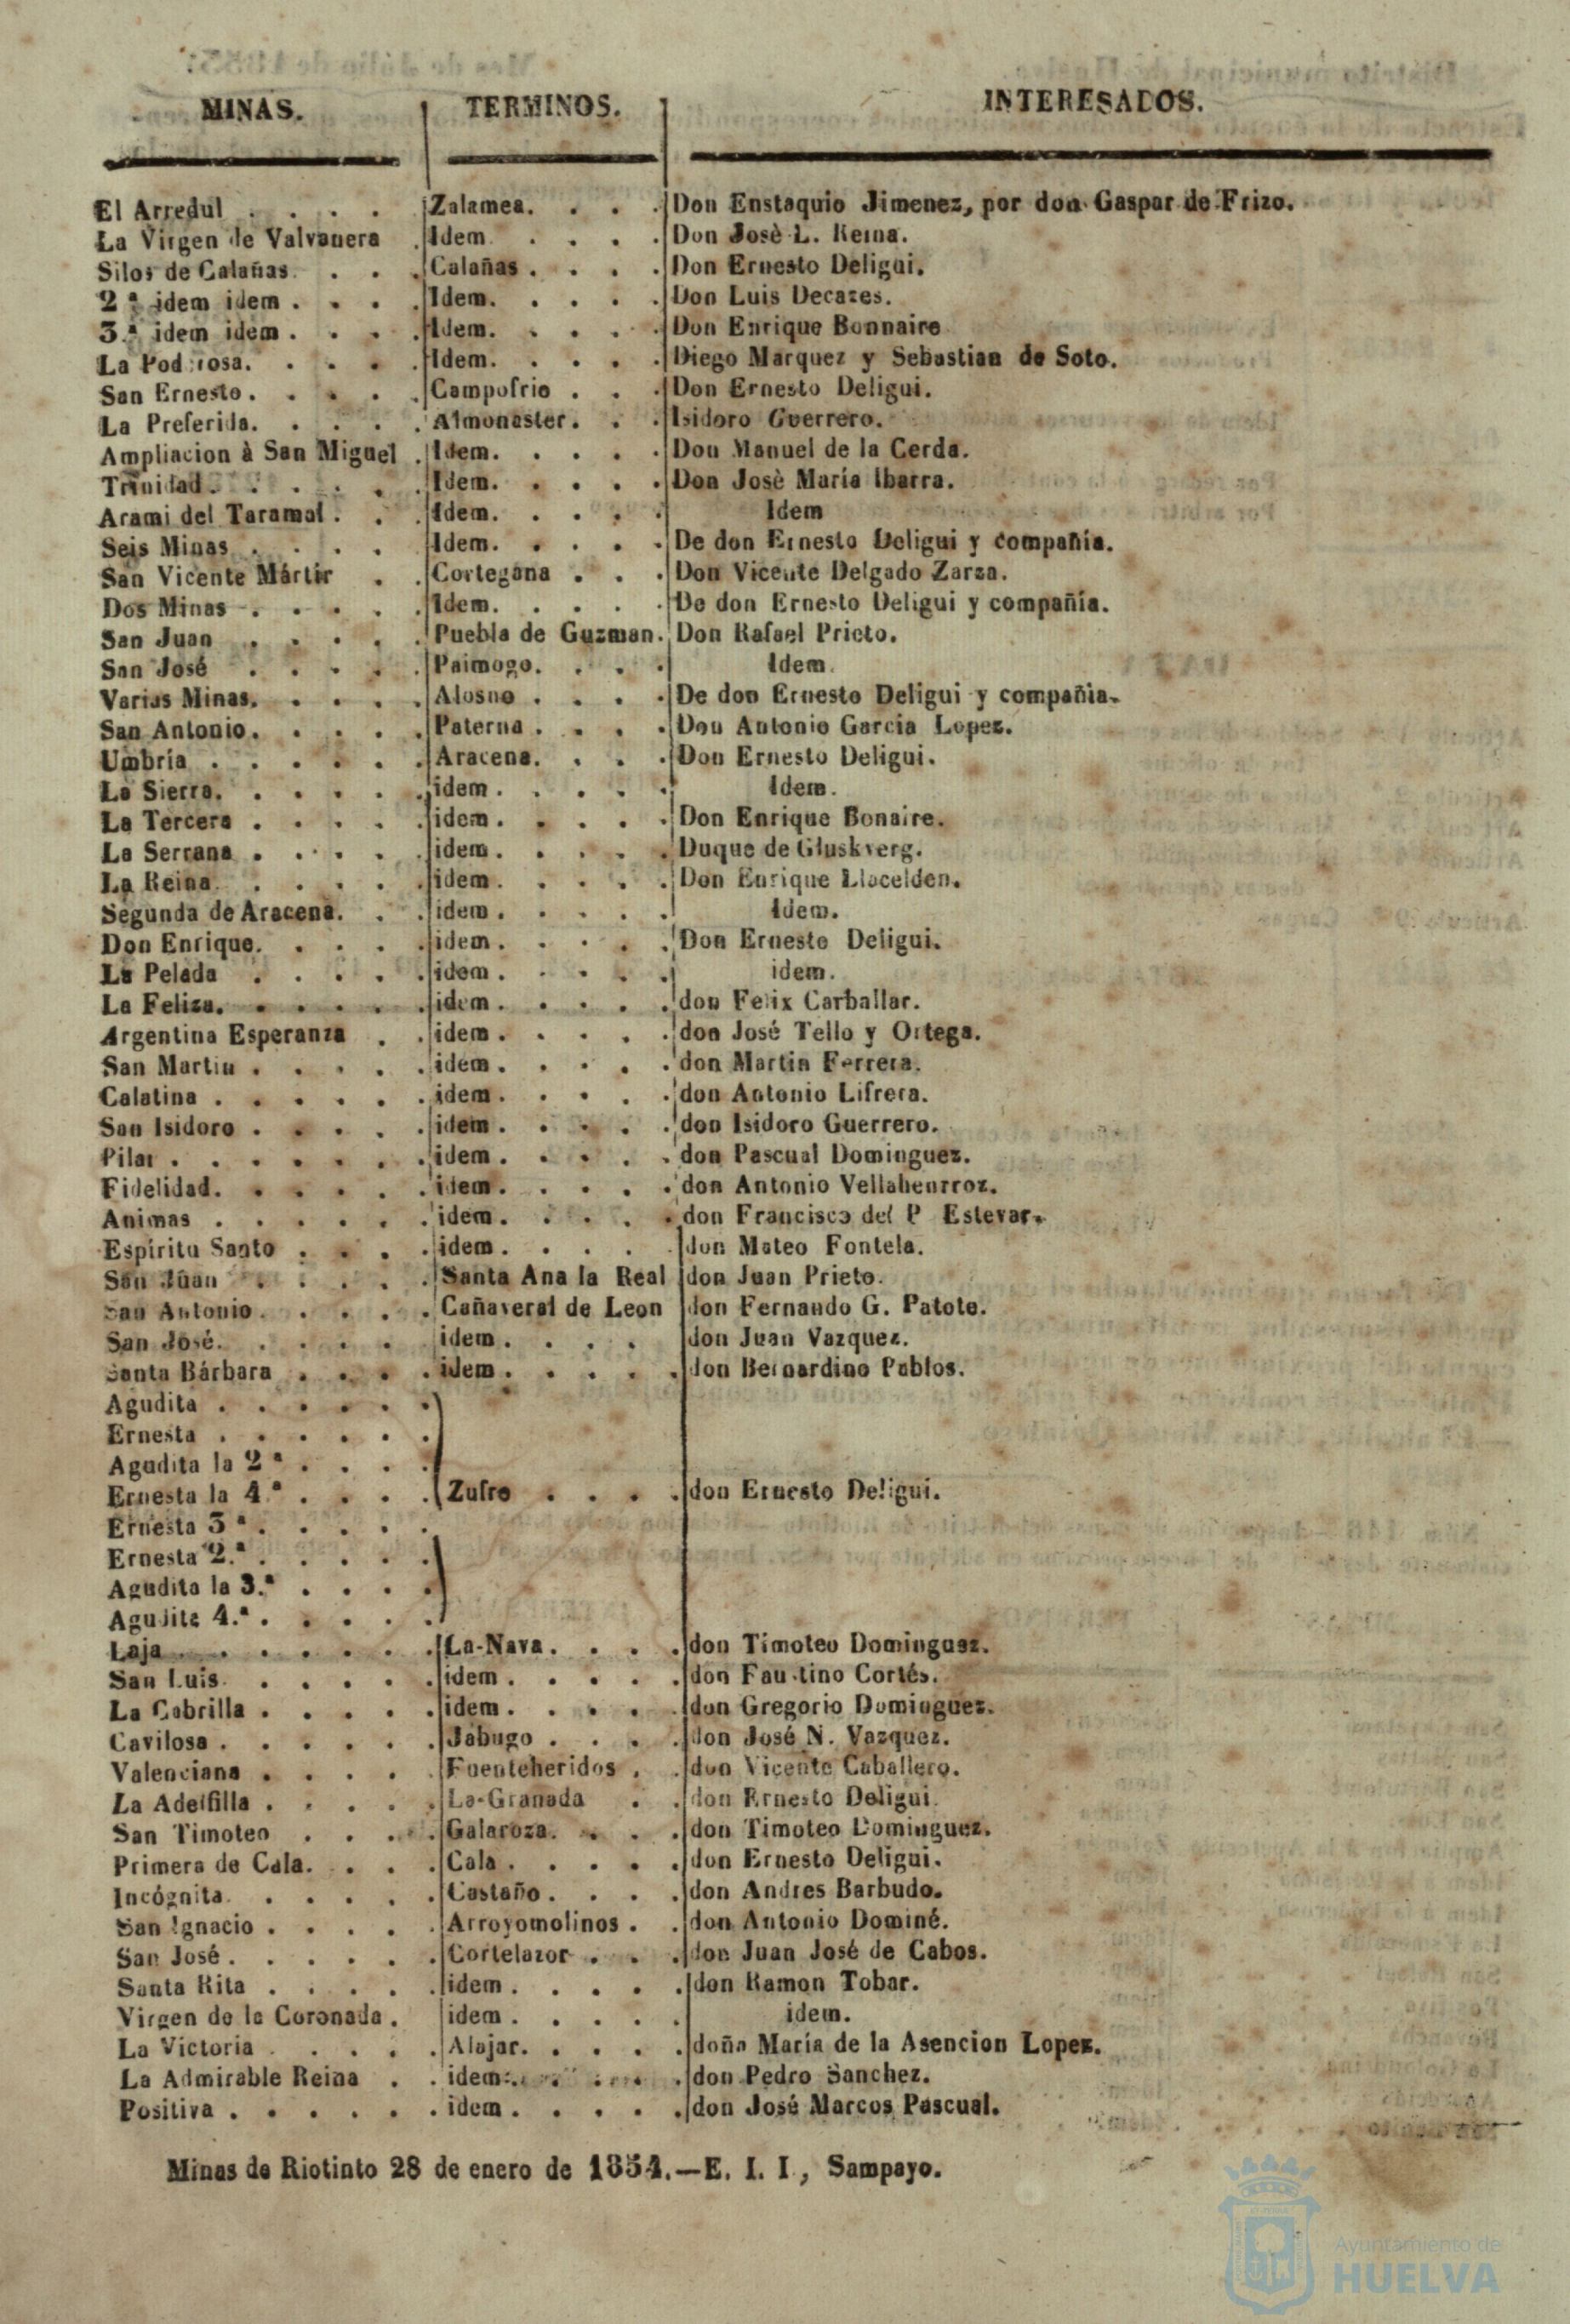 MINAS. TERMINOS. INTERESADOS.
El Arredul Zalamea. Don Enstaquio Jimenez, por don Gaspar de Frizo.
La Virgen de Valvanera Idem Don Josè L. Reina.
Silos de Calañas. Calañas. Don Ernesto Deligui.
2.ª idem idem. Idem. Don Luis Decazes.
3.ª idem idem. Idem. Don Enrique Bonnaire
La Poderosa. Idem. Diego Marquez y Sebastian de Soto.
San Ernesto. Campofrio Don Ernesto Deligui.
La Preferida. Almonaster. Isidoro Guerrero.
Ampliacion à San Miguel Idem. Don Manuel de la Cerda.
Trinidad. Idem. Don Josè María Ibarra.
Arami del Taramal. Idem. Idem
Seis Minas. Idem. De don Ernesto Deligui y compañia.
San Vicente Mártir Cortegana Don Vicente Delgado Zarza.
Dos Minas. Idem. De don Ernesto Deligui y compañia.
San Juan Puebla de Guzman. Don Rafael Prieto.
San José Paimogo. Idem.
Varias Minas. Alosno De don Ernesto Deligui y compañia.
San Antonio. Paterna Don Antonio Garcia Lopez.
Umbría Aracena. Don Ernesto Deligui.
La Sierra. idem. Idem.
La Tercera idem. Don Enrique Bonaire.
La Serrana idem. Duque de Gluskverg.
La Reina. idem. Don Enrique Llacelden.
Segunda de Aracena. idem. Idem.
Don Enrique. idem. Don Ernesto Deligui.
La Pelada idem. idem.
La Feliza. idem. don Felix Carballar.
Argentina Esperanza idem. don José Tello y Ortega.
San Martin idem. don Martin Ferrera.
Calatina idem. don Antonio Lifrera.
San Isidoro idem. don Isidoro Guerrero.
Pilar idem. don Pascual Dominguez.
Fidelidad. idem. don Antonio Vellahenrroz.
Animas idem. don Francisco del P Estevar.
Espíritu Santo idem. don Mateo Fontela.
San Juan Santa Ana la Real don Juan Prieto.
San Antonio. Cañaveral de Leon don Fernando G. Patote.
San José. idem. don Juan Vazquez.
Santa Bárbara idem. don Bernardino Pablos.
Agudita
Ernesta
Agudita la 2.ª
Ernesta la 4.ª Zufre don Ernesto Deligui.
Ernesta 3.ª
Ernesta 2.ª
Agudita la 3.ª
Agudita 4.ª
Laja La-Nava. don Timoteo Dominguez.
San Luis. idem. don Faustino Cortés.
La Cabrilla idem. don Gregorio Dominguez.
Cavilosa Jabugo don José N. Vazquez.
Valenciana Fuenteheridos don Vicente Caballero.
La Adelfilla La-Granada don Ernesto Deligui.
San Timoteo Galaroza. don Timoteo Dominguez.
Primera de Cala. Cala. don Ernesto Deligui.
Incógnita. Castaño. don Andres Barbudo.
San Ignacio Arroyomolinos. don Antonio Dominé.
San José. Cortelazor don Juan José de Cabos.
Santa Rita idem. don Ramon Tobar.
Virgen de la Coronada. idem. idem.
La Victoria Alajar. doña María de la Asencion Lopez.
La Admirable Reina idem. don Pedro Sanchez.
Positiva idem. don José Marcos Pascual.
Minas de Riotinto 28 de enero de 1854.—E. I. I., Sampayo.
Ayuntamiento de
HUELVA